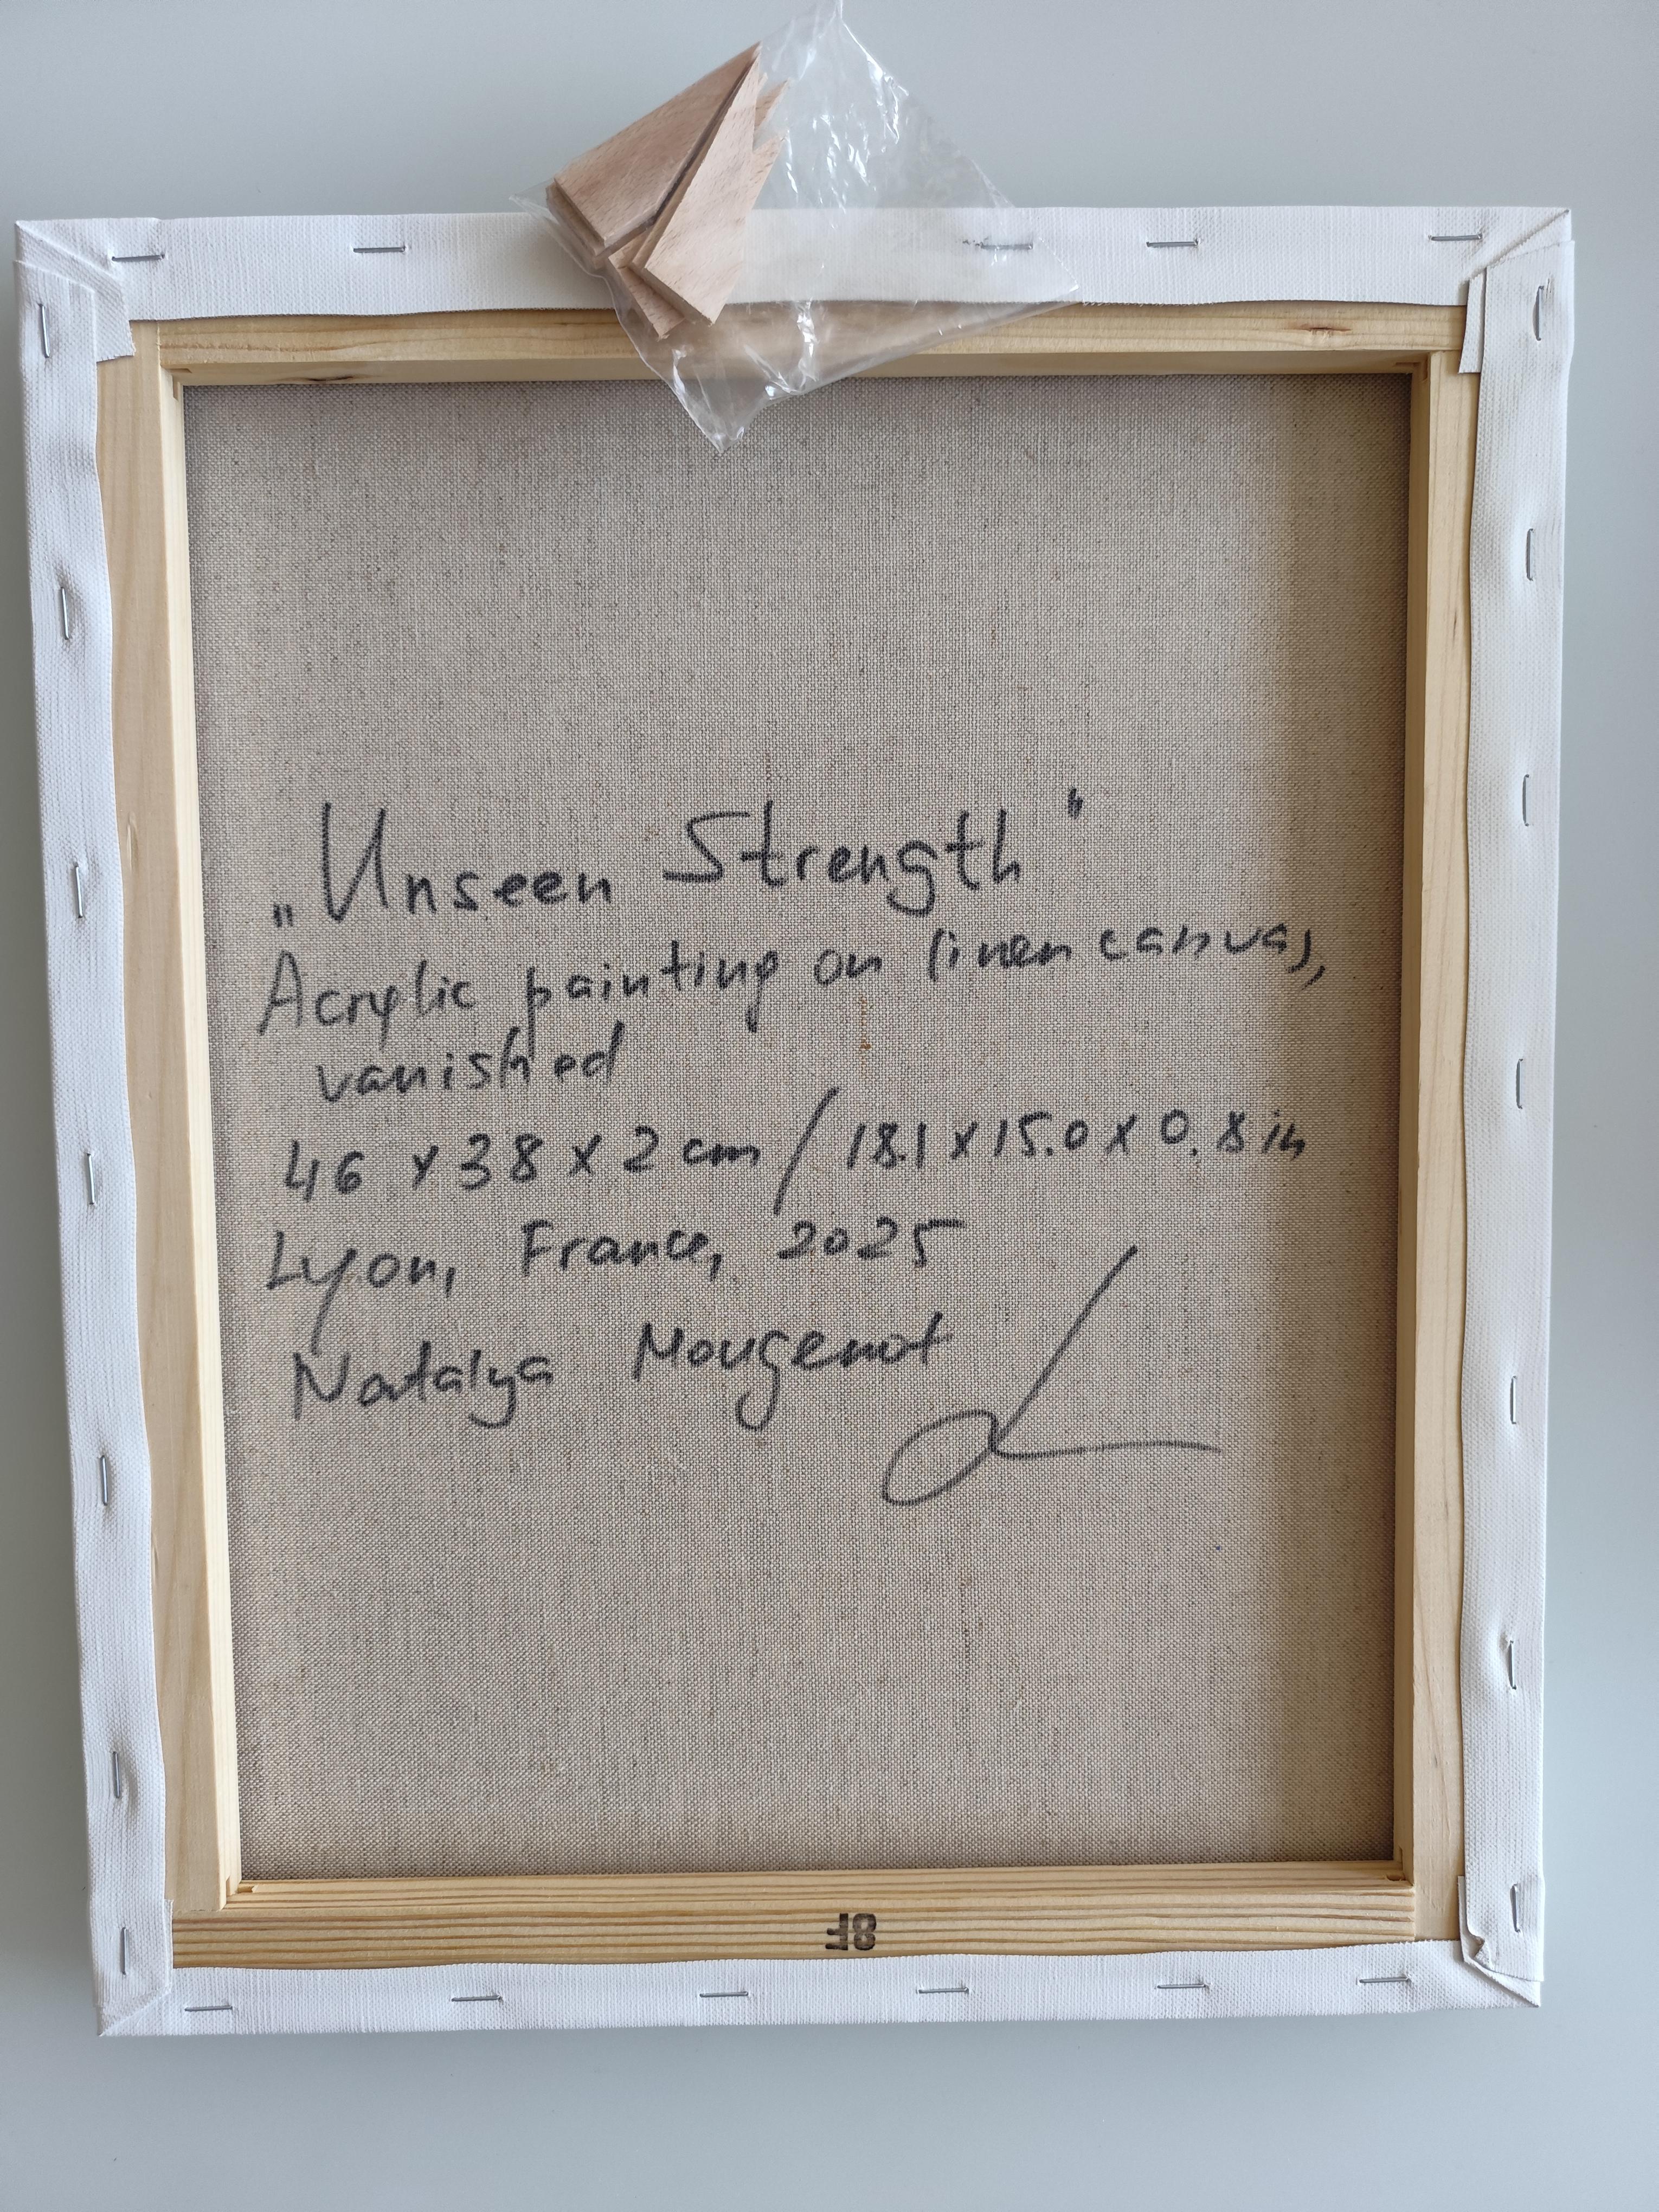 „Unseen Strength"
Acrylic painting on linen canvas,
vanished
46 x 38 x 2 cm / 18.1 x 15.0 x 0.8 in
Lyon, France, 2025
Natalya Mougenot
8F